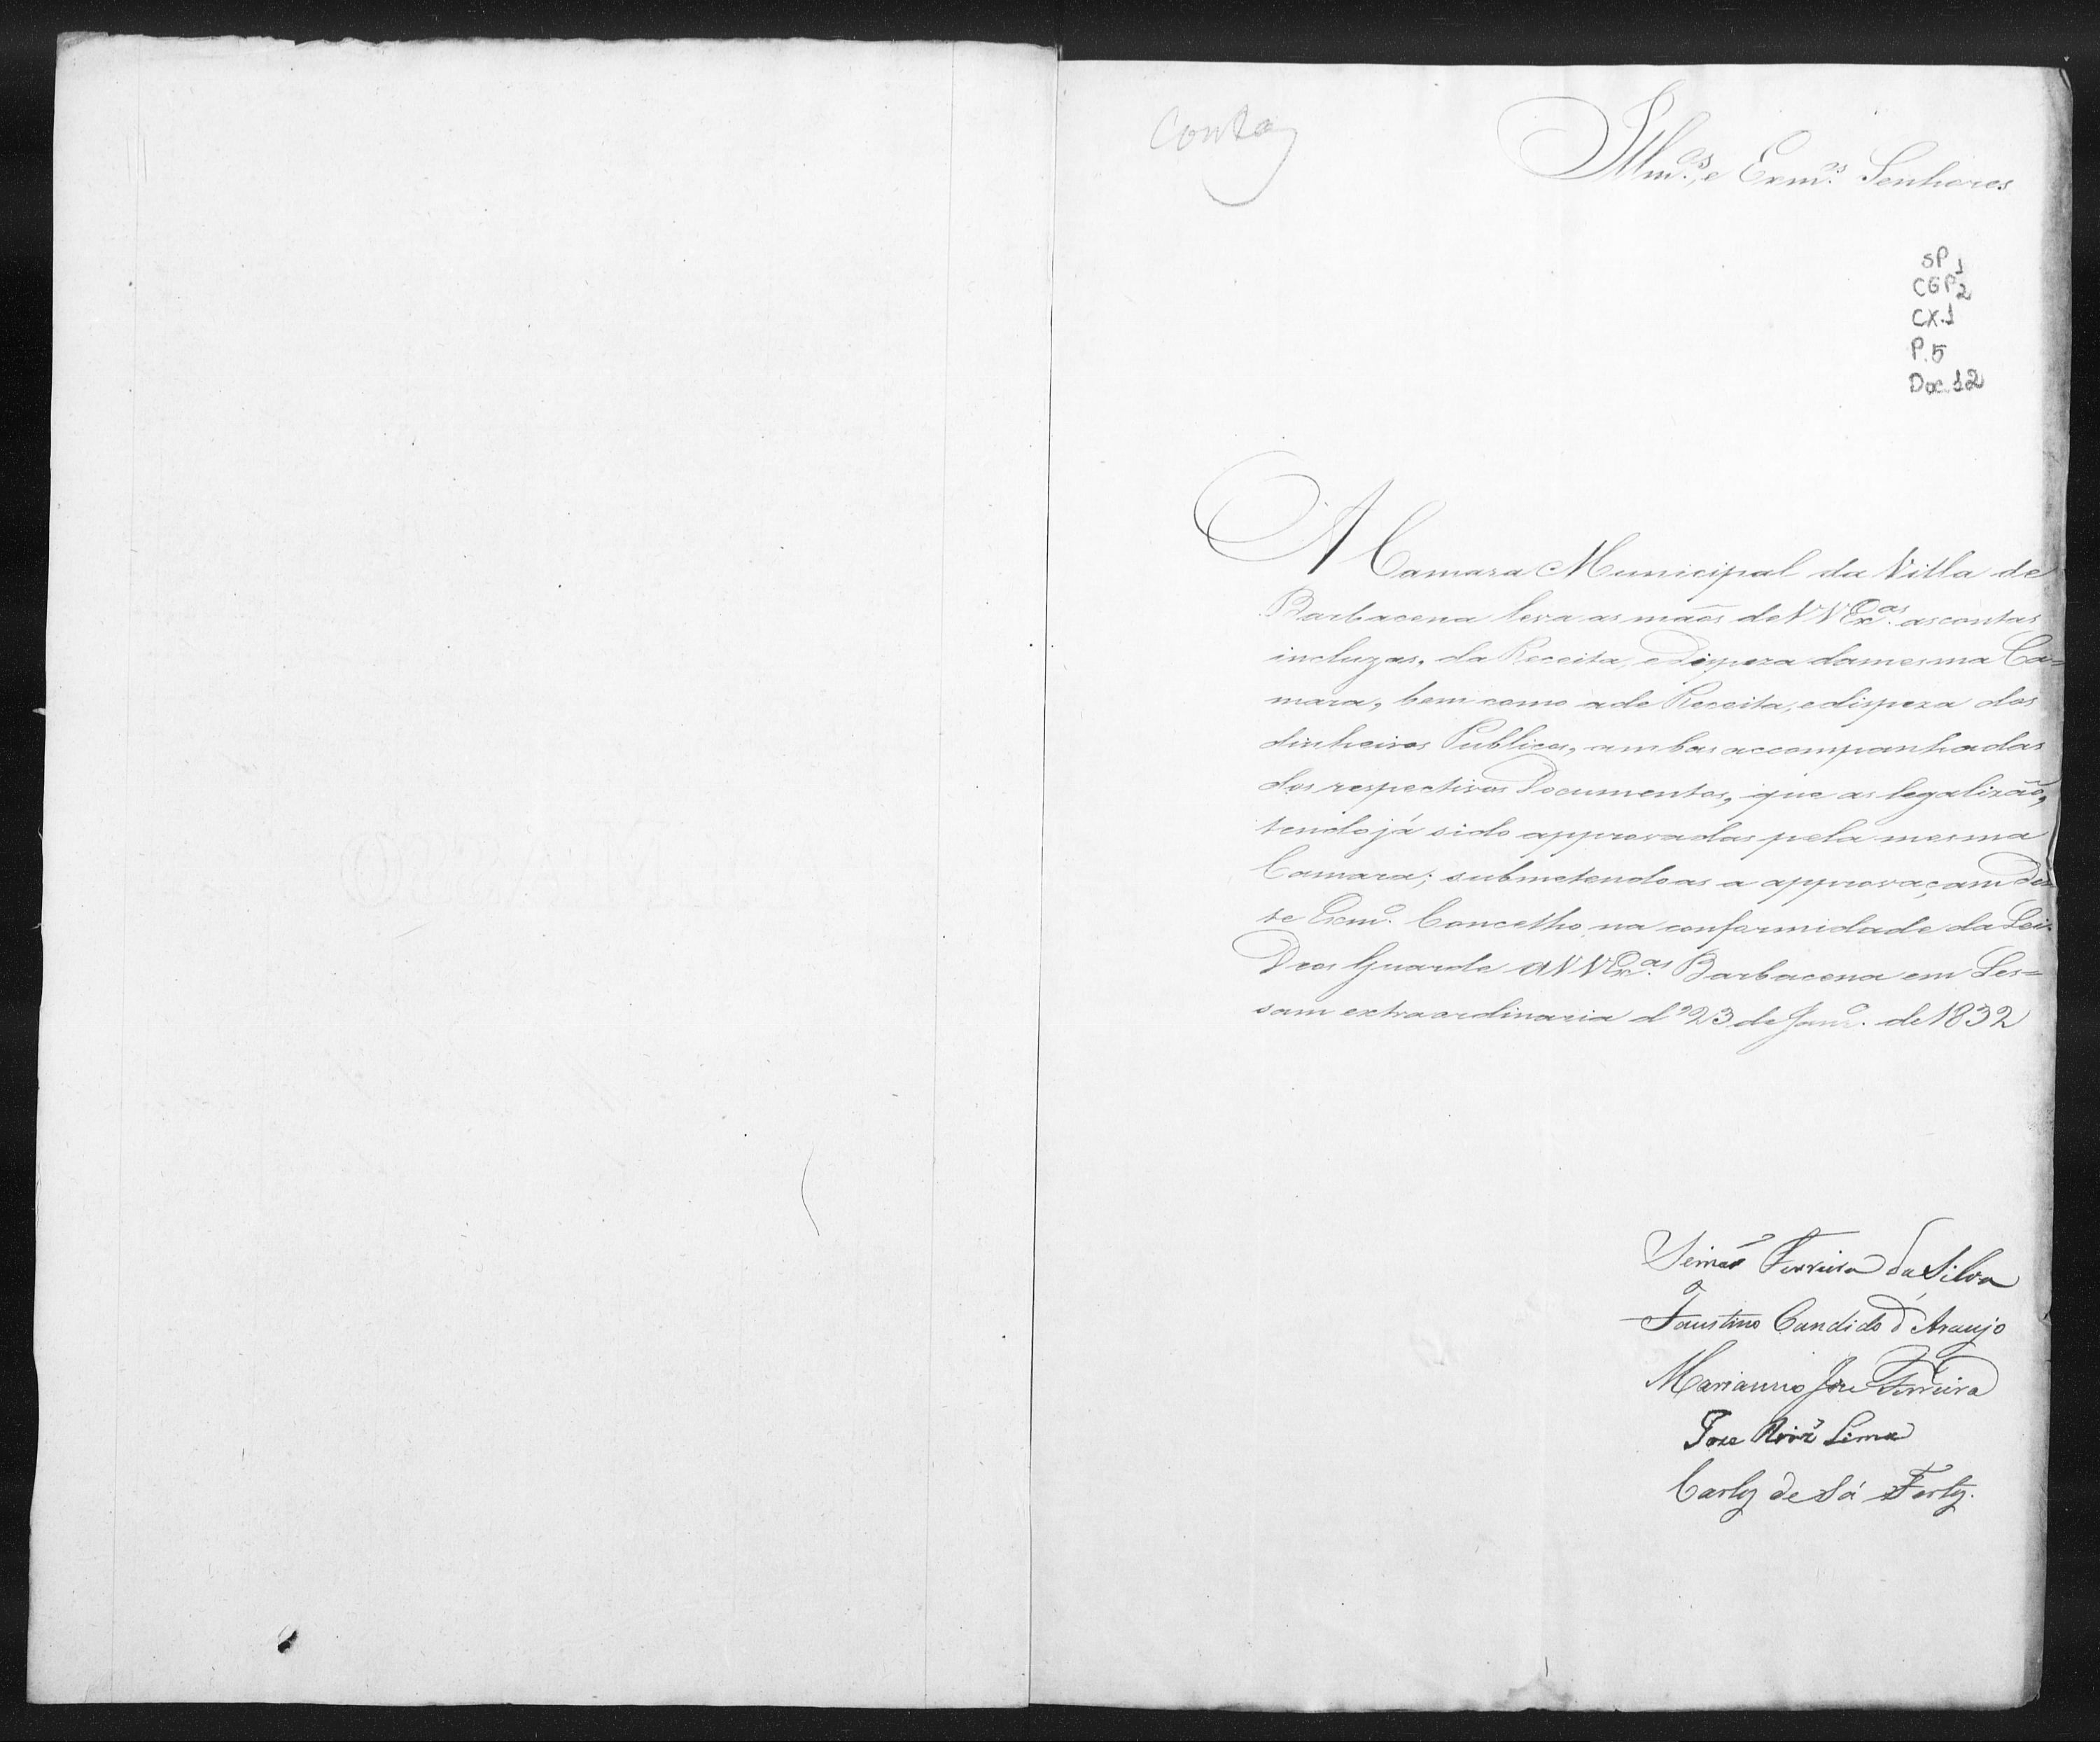 Contas
Illmos. e Exmos. Senhores
SP 1
CGP 2
CX.1
P.5
Doc.12
A Camara Municipal da Villa de
Barbacena leva as mãos de VVExas. as contas
incluzas, da Receita, e Dispeza da mesma Ca=
mara, bem como a de Receita, e dispeza dos
dinheiros Publicos, ambas accompanhadas
dos respectivos Documentos, que as legalizão,
tendo já sido approvadas pela mesma
Camara; submetendoas a approvaçam Des=
te Exmo. Concelho na conformidade da Lei.
Deos Guarde a VVExas. Barbacena em Ses=
sam extraordinaria de 23 de Janro. de 1832
Simão Ferreira da Silva
Faustino Candido d'Araujo
Marianno Jose Ferreira
Joze Roiz Lima
Carlos de Sá Fortes.